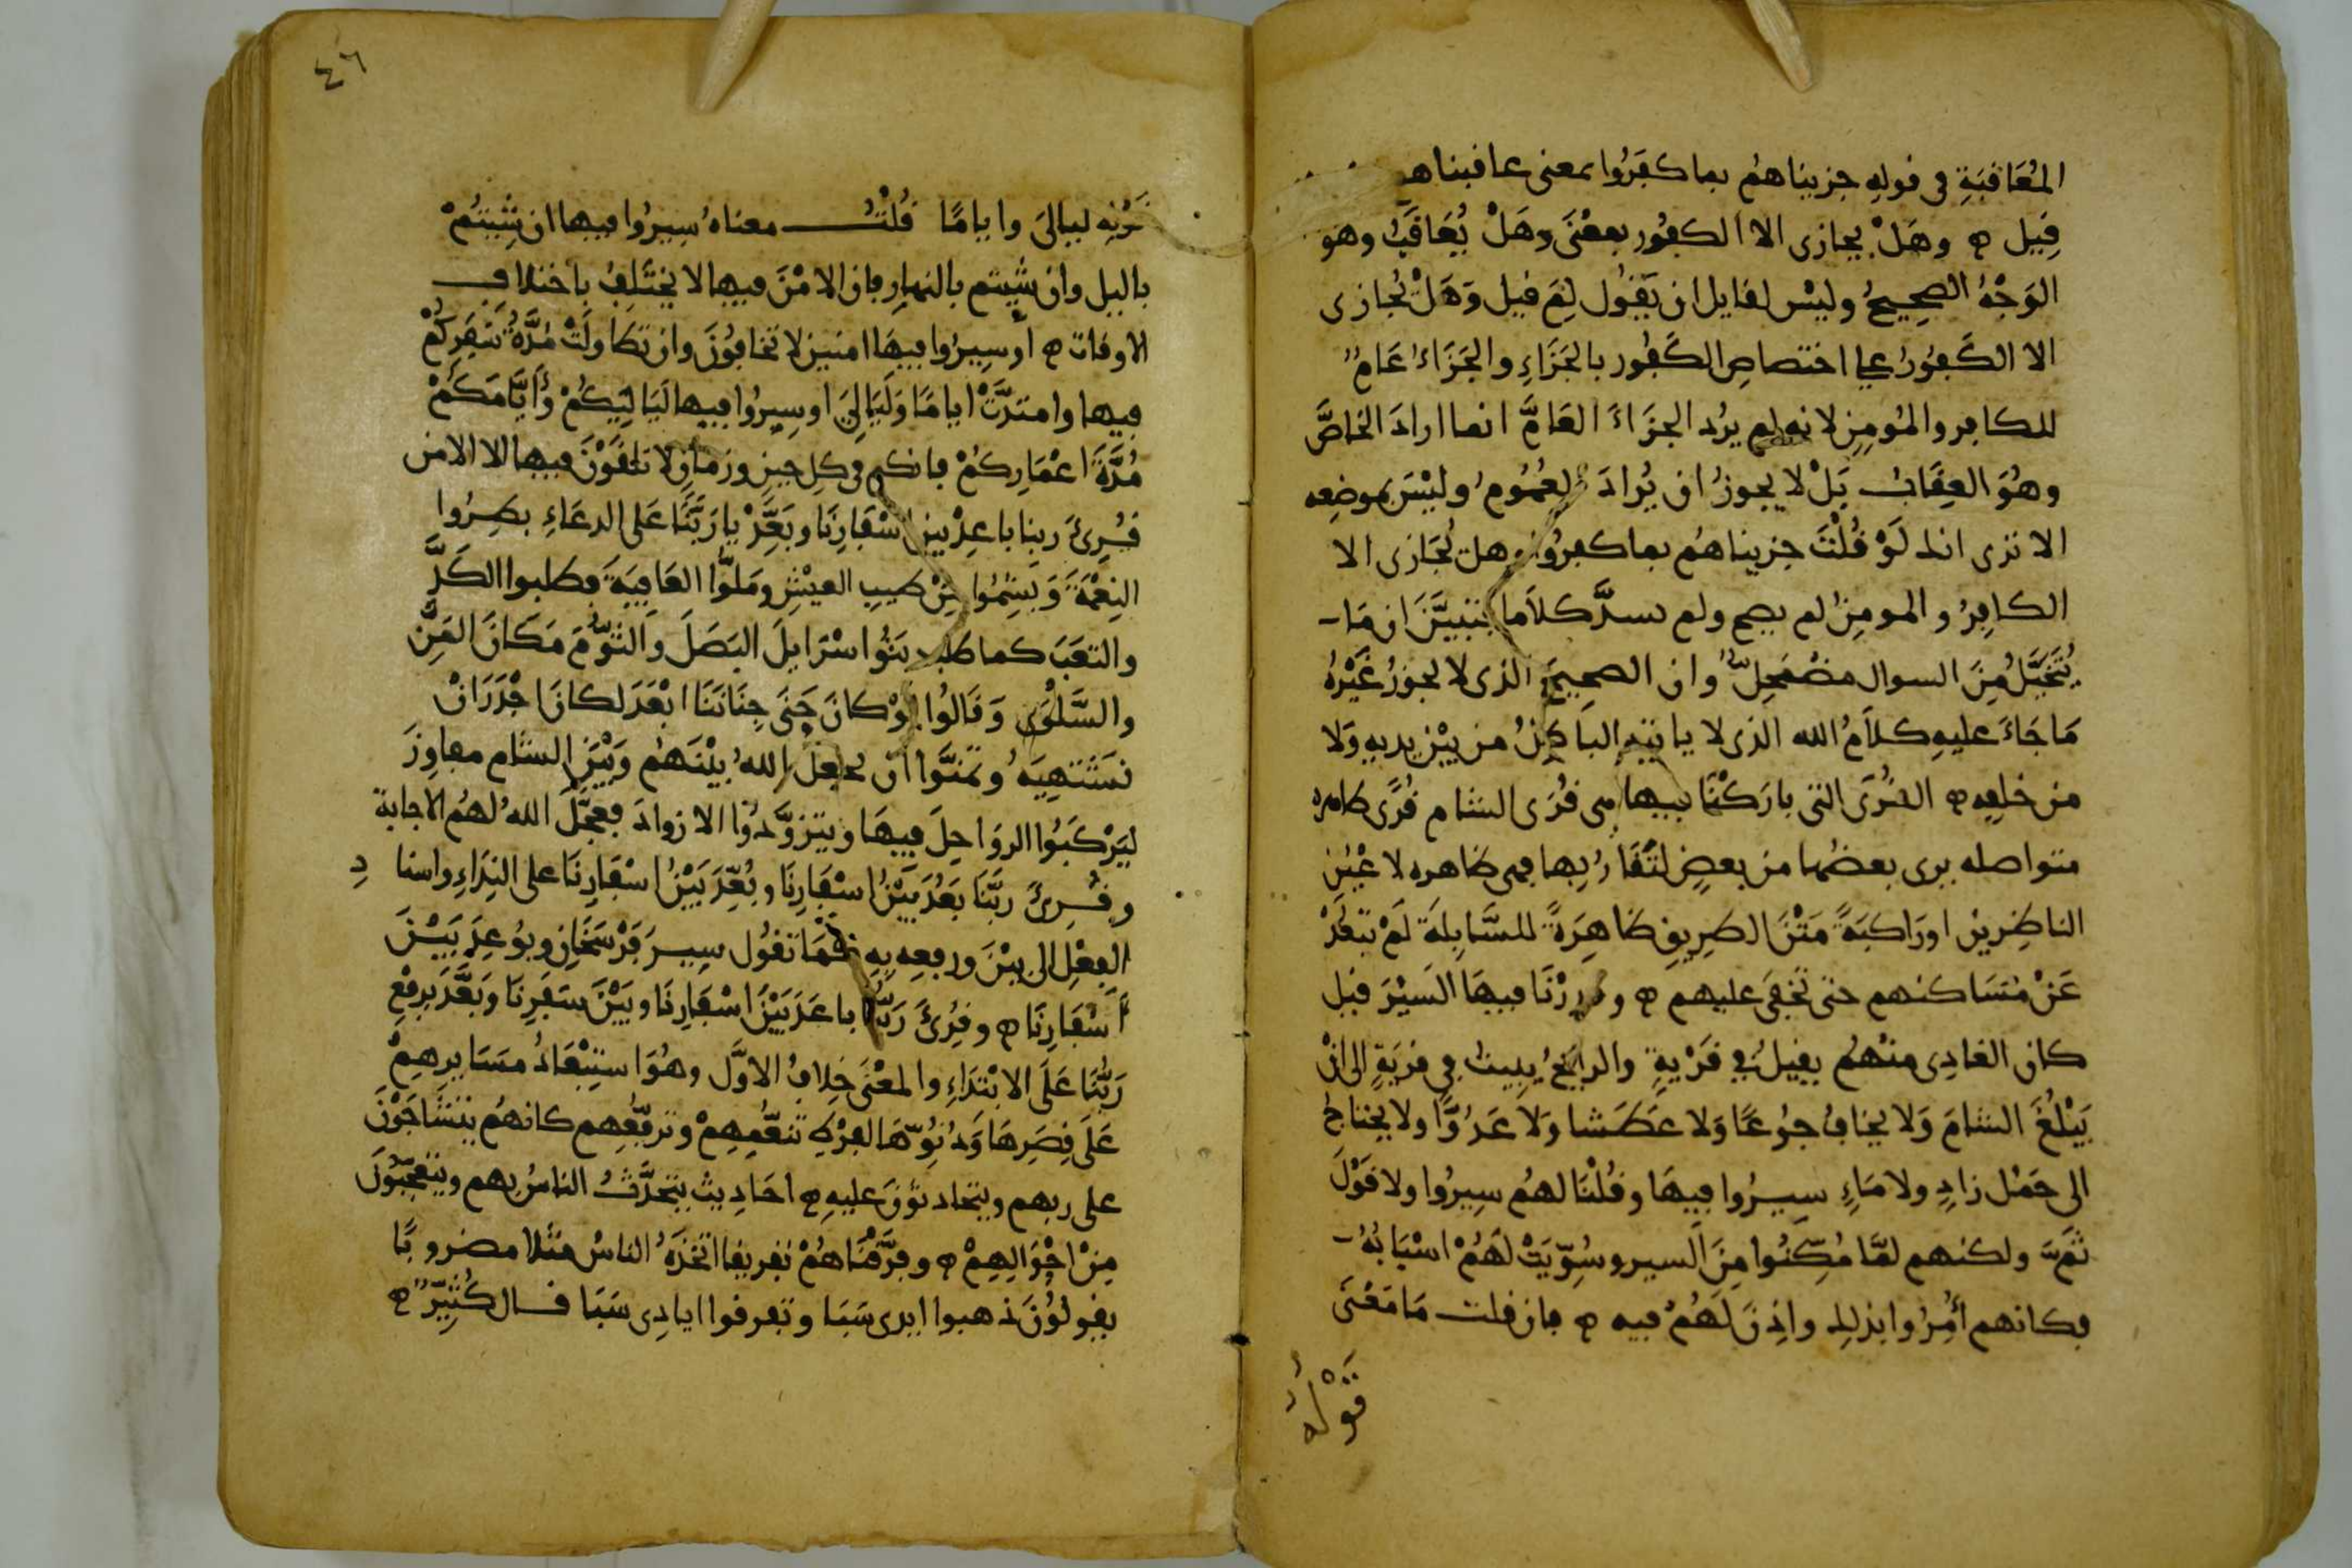 المُعَاقبَةِ في قولِهِ جزيناهُم بما كفَرُوا بمعنى عاقبناهم
قِيل ه وهَلْ يجازى الا الكفُور بمعْنَى وهَلْ يُعَاقَبُ وهو
الوَجْهُ الصحِيحُ وليْس لقايل ان يَقُول لِمَ قيل وَهَلْ يُجازى
الا الكَفُورُ على اختصاصِ الكَفُور بالجَزَاءِ والجَزَاءُ عَامٌ
للكافِر والمُومِنِ لانه لم يرُد الجزَاءَ العَامَّ انما ارادَ الخاصَّ
وهُوَ العِقَابُ بَلْ لا يجوزُ ان يُرادَ العُمُومُ وليْسَ بموضِعه
الا ترى انك لَوْ قُلْتَ جزيناهُم بما كفرُوا وهل يُجَازى الا
الكافِرُ والمومِنُ لم يصح ولم يسدَّ كلاَما فتبيَّنَ ان مَا
يُتَخَيَّلُ مِنَ السوال مضْمَحِلٌّ وان الصحِيحَ الذى لا يجوزُ غَيْرُهُ
مَا جَاءَ عليهِ كلاَمُ الله الذى لا ياتيهِ الباطِلُ من بيْن يديهِ وَلا
من خلفِه ه القُرَى التى بارَكْنَا فيها هى قُرَى الشام قُرًى ظاهره
متواصله يرى بعضُها من بعضٍ لتَقَارُبِها فهى ظاهره لاعْيُن
الناظِرين اورَاكبَةً مَتْنَ الطرِيقِ ظاهِرَةً للسَّابِلَة لَمْ تبعُدْ
عَنْ مَسَاكنهم حتى تخْفَى عليهم ه وقدرْنَا فيهَا السَيْرَ قيل
كان الغادِى منْهُم يقِيلُ فِي قَرْيةٍ والرايحُ يبيتُ في قريَةٍ الى انْ
يَبْلُغَ الشامَ وَلا يخافُ جوُعًا وَلا عَطَشا وَلا عَدُوًّا ولا يحْتاجُ
الى حَمْل زادٍ ولا مَاءٍ سِيرُوا فيهَا وقُلْنَا لهُم سِيرُوا ولا قَوْلَ
ثَمَّ ولكنهم لمَّا مُكِّنُوا مِنَ السير وسُوِّيَتْ لَهُمْ اسْبَابُهُ
فكانهم أُمِرُوا بذلِك واذِنَ لَهُمْ فيه ه فان قلت مَا مَعْنَى
قَوْلُهُ
٤٦
قَوْلِه ليالىَ واياما قُلْتُ معناهُ سِيرُوا فيها ان شِيتُمْ
بالليل وان شِيتم بالنهارِ فان الامْنَ فيها لا يختَلِفُ باختلافِ
الاوقات ه أو سِيرُوا فيهَا امنين لا تخافُونَ وان تطاوَلَتْ مُدَّةُ سَفَرِكُمْ
فيها وامتدَّتْ اياما وَلَيَالِيَ او سِيرُوا فيها لَيَالِيَكُمْ وَأيَّامَكُمْ
مُدَّةَ اعْمَارِكُمْ فانكم في كل حينٍ وزمانٍ لا تلقَوْنَ فيها الا الامْن
قُرِئَ ربنا باعِدْ بين اسْفَارِنَا وبَعِّدْ يا رَبَّنَا عَلى الدعَاءِ بطِرُوا
النِعْمَةَ وَبَشِمُوا مِنْ طيبِ العيْشِ ومَلوُّا العَافِيَةَ فطلبوا الكَدَّ
والتعَبَ كما طلب بَنُوا اسْرَايلَ البَصَلَ والثوُّمَ مَكَانَ المَنِّ
والسَّلْوَى وَقَالُوا لوْ كانَ جَنَى جِنَانَنَا ابْعَدَ لكانَ اجْدَرَ انْ
نَشْتهِيَهُ وتمَنَّوا انْ يجْعَلَ اللهُ بيْنَهُم وَبَيْنَ الشام مفاوِزَ
ليَرْكَبُوا الروَاحِلَ فيهَا وَيتزوَّدُوا الازوادَ فعجَّلَ اللهُ لهُم الاجابة
وقُرِئَ ربَّنَا بَعُدَ بَيْنُ اسْفَارِنَا وبُعِّدَ بَيْنُ اسْفَارِنَا على النِدَاءِ واسنادِ
الفِعْلِ الى بيْنَ ورفعِه بِهِ كَمَا تقُول سِيرَ فَرْسَخَانِ وبُوعِدَ بَيْنَ
أَسْفَارِنَا ه وقُرِئَ رَبُّنَا باعَدَ بَيْنَ اسْفَارِنَا وبَيْنَ سَفَرِنَا وبَعَّدَ برفْعِ
رَبُّنَا عَلَى الابْتدَاءِ والمعْنَى خِلافُ الاوَّل وهُوَ استِبْعَادُ مسَايرِهِمْ
عَلَى قِصَرِهَا وَدُنُوِّهَا لفرْطِ تنعُّمِهِمْ وترفُّهِهِم كانهُم يتشَاجَوْنَ
على ربهم ويتحادنوُنَ عليهِ ه احَادِيث يتحدَّثُ الناسُ بهم ويتعجَّبُونَ
مِنْ احْوَالِهِمْ ه وفرَّقْنَاهُمْ تفريقا اتخَذَهُ الناسُ مثَلا مضروبًا
يقولُونَ ذهبوا ايدى سَبَا وتفرقوا ايادِى سَبَا قال كُثيِّرٌ ه